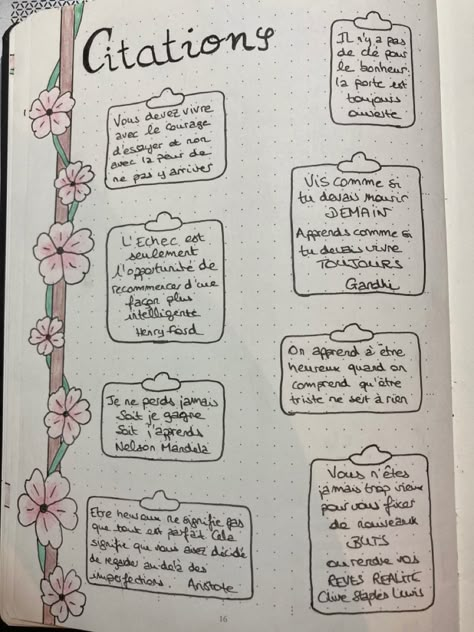 Citations
Vous devez vivre
avec le courage
d'essayer et non
avec la peur de
ne pas y arriver
L'Echec est
seulement
l'opportunité de
recommencer d'une
façon plus
intelligente
Henry Ford
Je ne perds jamais
Soit je gagne
Soit j'apprends
Nelson Mandela
Etre heureux ne signifie pas
que tout est parfait Cela
signifie que vous avez décidé
de regarder au delà des
imperfections. Aristote
Il n'y a pas
de clé pour
le bonheur
la porte est
toujours
ouverte
Vis comme si
tu devais mourir
DEMAIN
Apprends comme si
tu devais vivre
TOUJOURS
Gandhi
On apprend à être
heureux quand on
comprend qu'être
triste ne sert à rien
Vous n'êtes
jamais trop vieux
pour vous fixer
de nouveaux
BUTS
ou rendre vos
REVES REALITE
Clive Staples Lewis
16